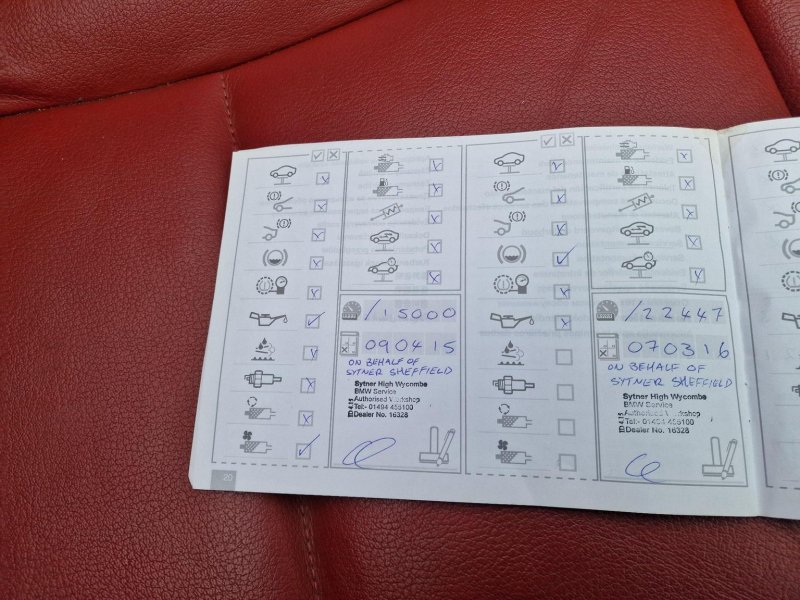 /15000
090415
ON BEHALF OF
SYTNER SHEFFIELD
Sytner High Wycombe
BMW Service
Authorised Workshop
Tel:- 01494 455100
Dealer No. 16328
20
/22447
070316
ON BEHALF OF
SYTNER SHEFFIELD
Sytner High Wycombe
BMW Service
Authorised Workshop
Tel:- 01494 455100
Dealer No. 16328